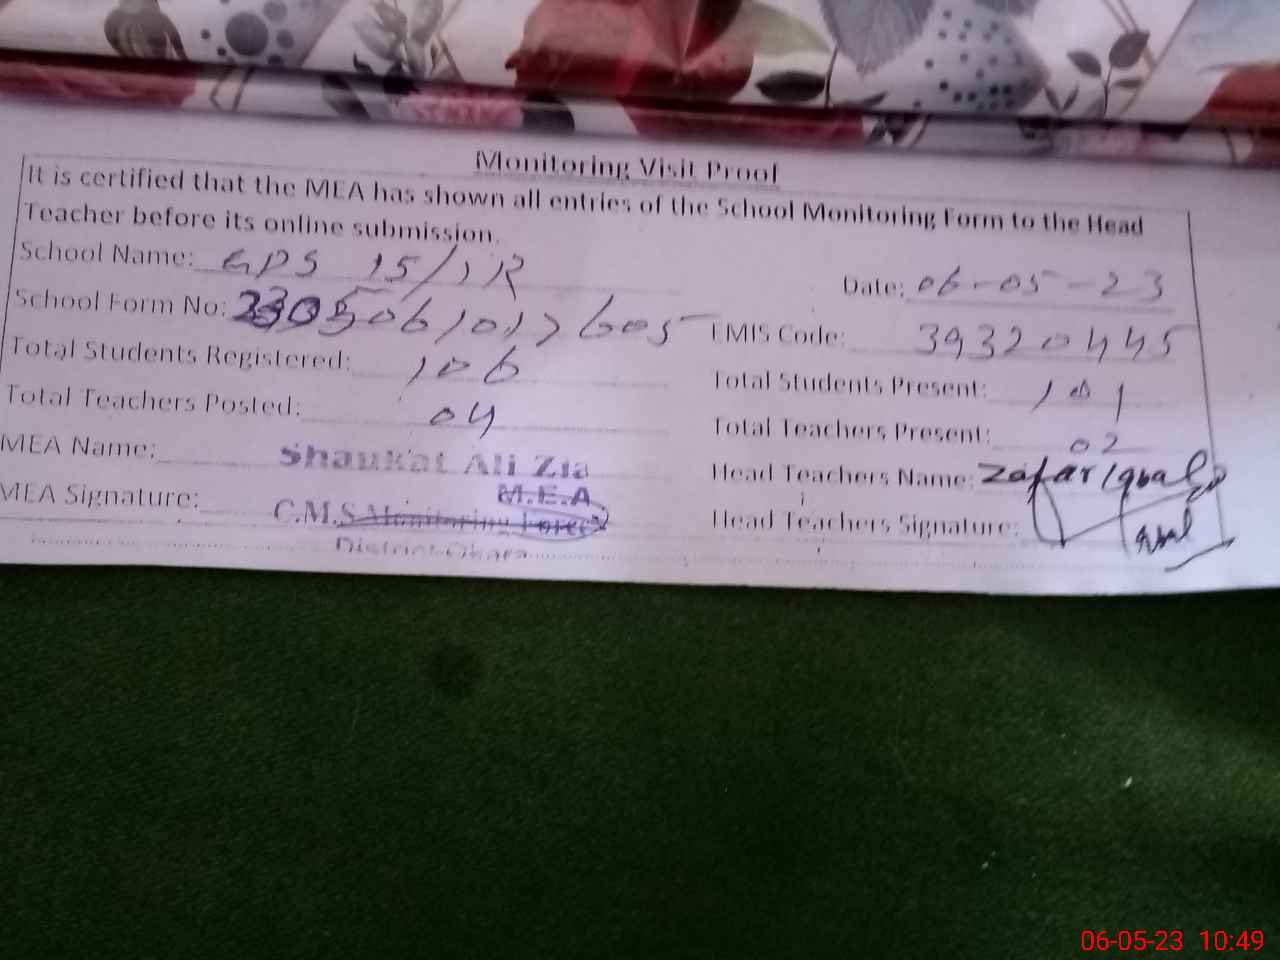 Monitoring Visit Proof
It is certified that the MEA has shown all entries of the School Monitoring Form to the Head
Teacher before its online submission.
School Name: GPS 15/1R
Date: 06-05-23
School Form No:
EMIS Code: 39320445
Total Students Registered: 106
Total Students Present: 101
Total Teachers Posted: 04
Total Teachers Present: 02
MEA Name: Shaukat Ali Zia
Head Teachers Name: Zafar Iqbal
MEA Signature: M.E.A
C.M.S Monitoring Force
Head Teachers Signature:
District Okara
06-05-23 10:49